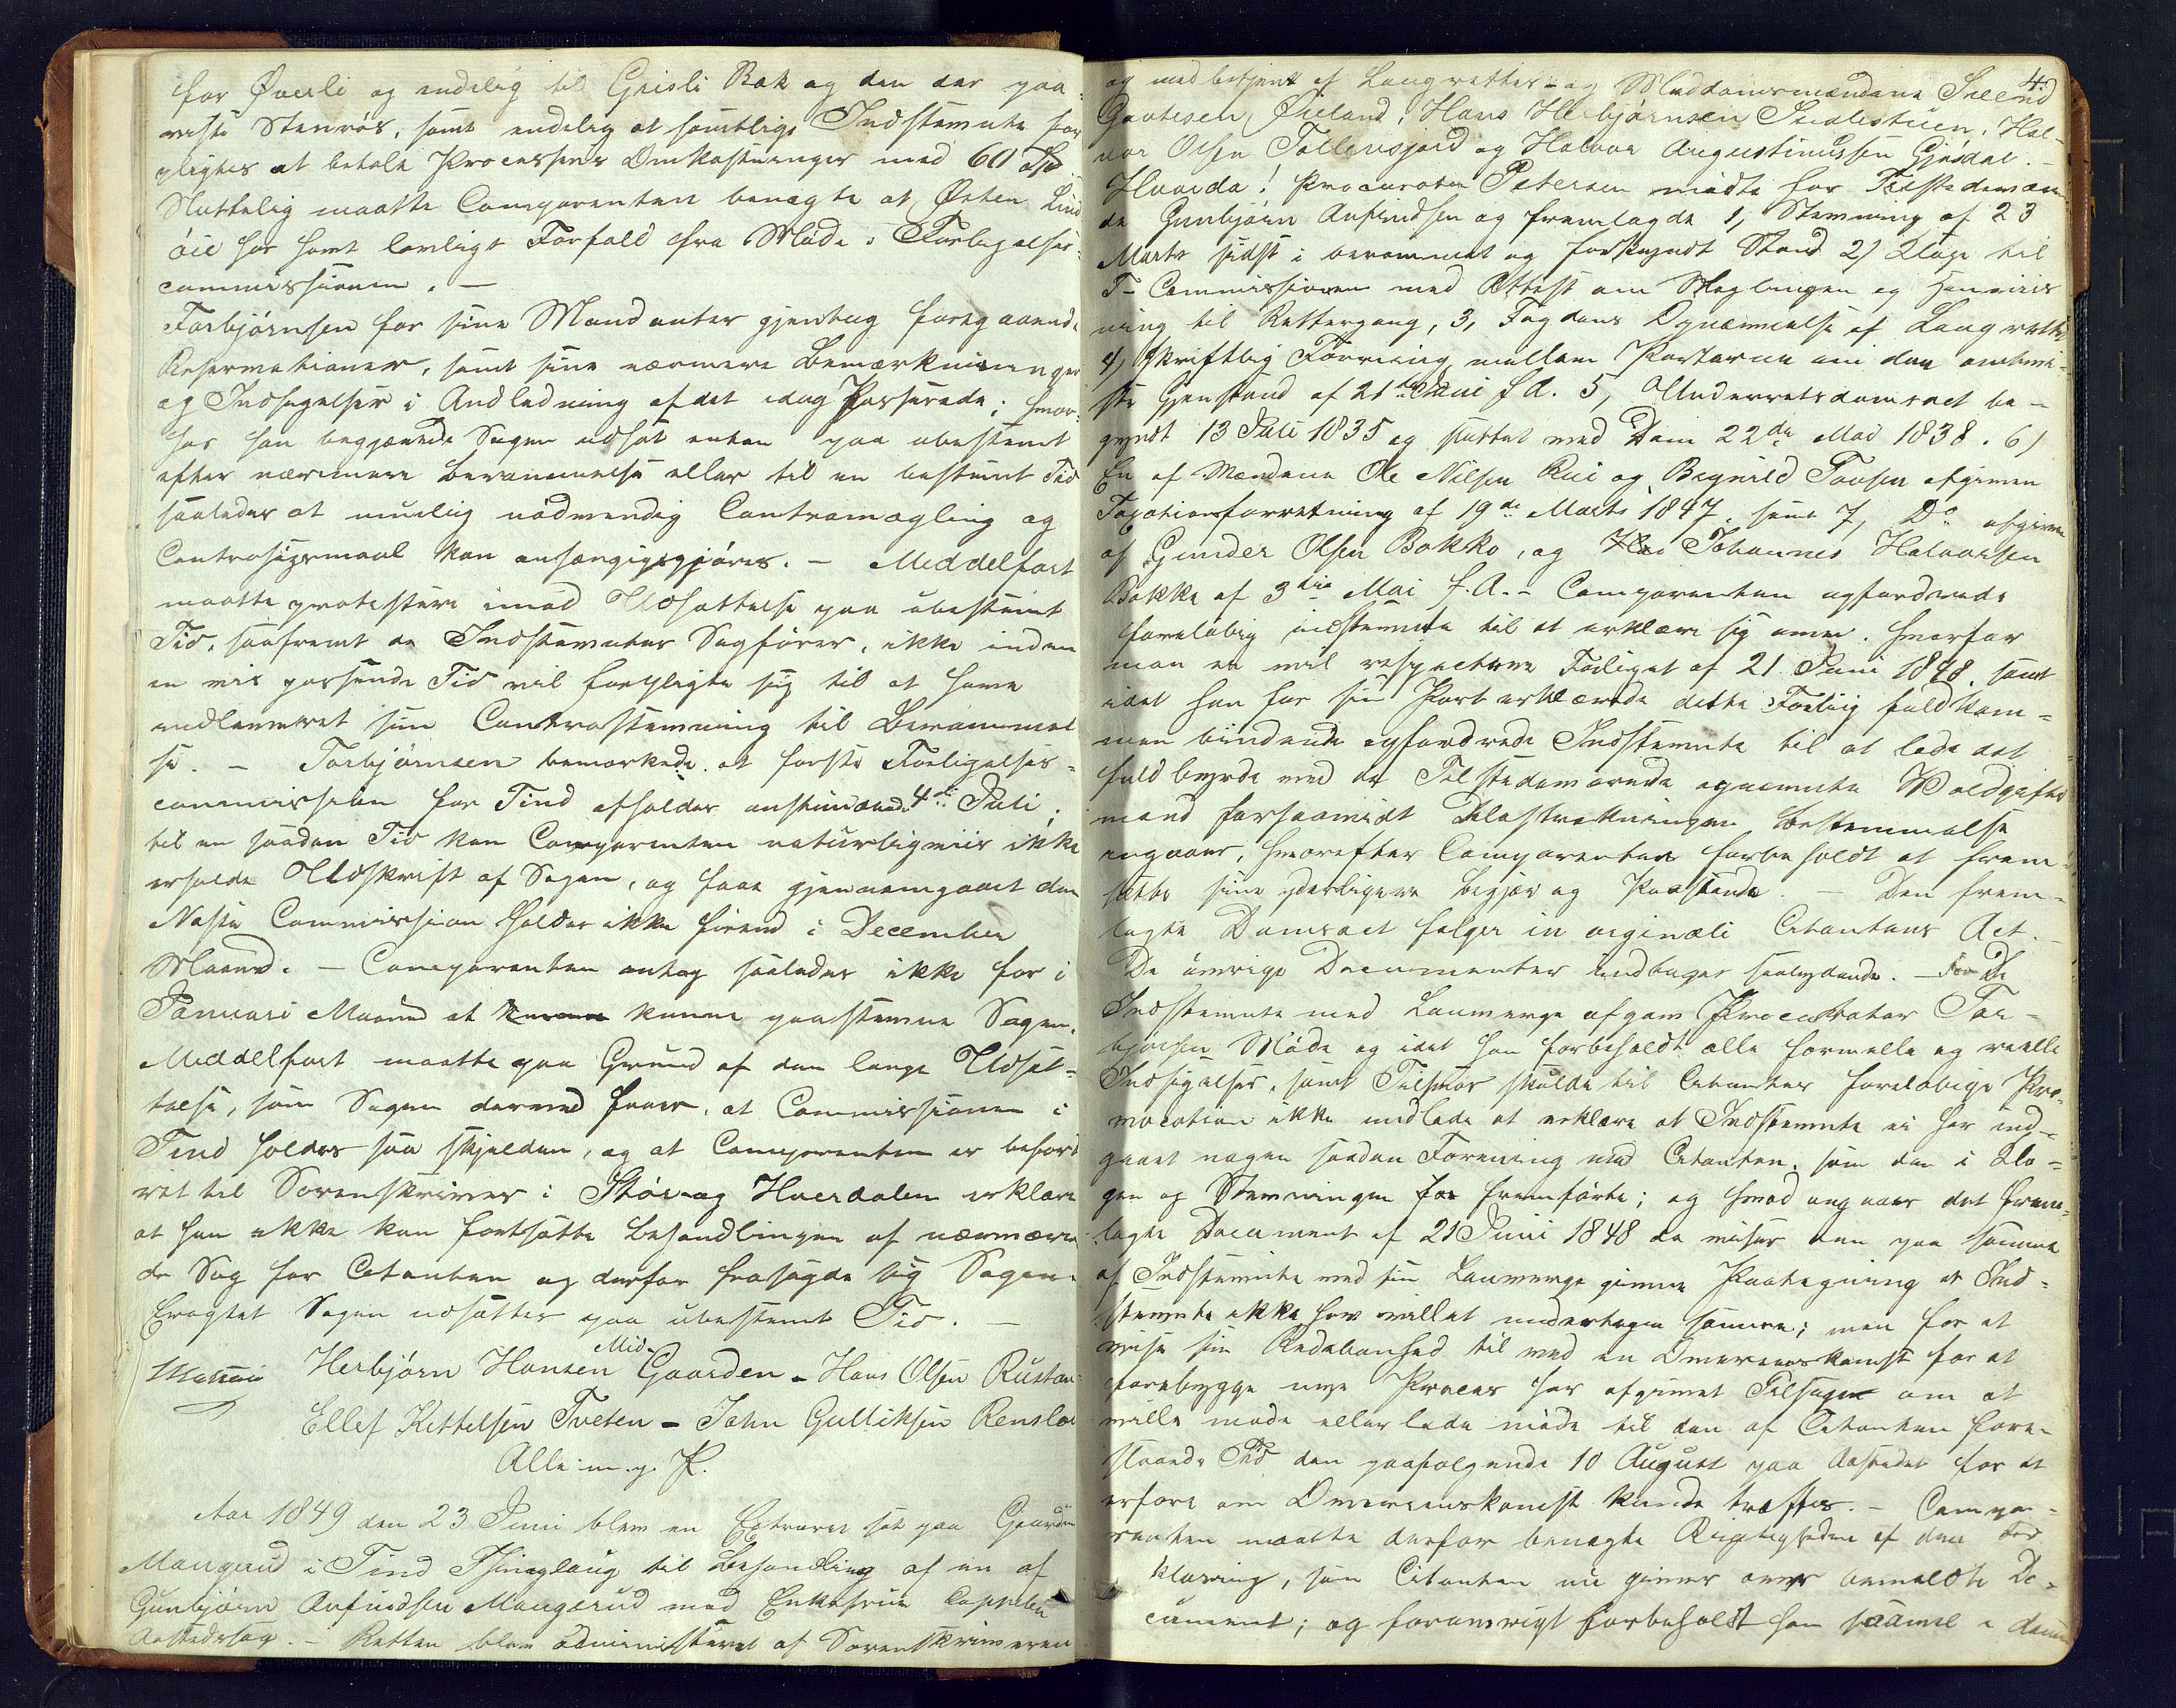 for Øverli og endelig til Grisli Bæk og den der paa-
viste Stenrøs, samt endelig at samtlige Indstevnte for
pligtes at betale Processens Omkostninger med 60 Spd
Sluttelig maatte Comparenten benægte at Østen Lind
øie har havt lovligt Forfald fra Møde i Forligelses-
commissionen. —
Torbjørnsen for sine Mandanter gjentog foregaaende
Reservationer, samt sine nærmere Bemærkninger
og Indsigelser i Andledning af det idag Passerede; hvor-
hos han begjærede Sagen udsat enten paa ubestemt
efter nærmere Berammelse eller til en bestemt Tid
saaledes at muelig nødvendig Contramægling og
Contrasøgsmaal kan anhængiggjøres. — Middelfart
maatte protestere imod Udsættelse paa ubestemt
Tid, saafremt de Indstevntes Sagfører, ikke inden
en vis passende Tid vil forpligte sig til at have
indleveret sin Contrastevning til Berammel
se. — Torbjørnsen bemærkede at første Forligelses-
commission for Tind afholdes anstundende 4de Juli;
til en saadan Tid kan Comparenten naturligviis ikke
erholde Udskrift af Sagen, og faae gjennemgaaet den
Næste Commission holdes ikke førend i December
Maaned. — Comparenten antog saaledes ikke før i
Januari Maaned at kunne paastevne Sagen.
Middelfart maatte paa Grund af den lange Udsæt-
telse, som Sagen derved faaer, at Commissionen i
Tind holdes saa skjelden, og at Comparenten er beford
ret til Sorenskriver i Stør- og Værdalen erklære
at han ikke kan fortsætte Behandlingen af nærværen
de Sag for Citanten og derfor frasagde sig Sagen.
Eragtet Sagen udsættes paa ubestemt Tid. —
Herbjørn Hansen MidGaarden - Hans Olsen Rustan
Ellef Kittelsen Tveten - John Gulliksen Renslo
Alle m. p. P.
Aar 1849 den 23 Juni blev en Extraret sat paa Gaarden
Maugerud i Tind Thinglaug til Behandling af en af
Gunbjørn Anfindsen Maugerud mod Enkefrue Cappelen
Aastedssag. — Retten blev administreret af Sorenskriveren
4.
og med betjent af Laugrettes- og Meddomsmændene
Gautesen Øieland, Hans Herbjørnsen, Hal-
vor Olsen Tollevsjord og Halvor Augustinussen Gjøsdal. —
Hvorda! Procurator Petersen mødte for Tilstedeværen
de Gunbjørn Anfindsen og fremlagde 1, Stevning af 23
Marts sidst i berammet og forkyndt Stand 2) Klage til
F- Commissionen med Attest om Mæglingen og Henviis
ning til Rettergang, 3, Fogdens Opnævnelse af Laugrettet
4) Skriftlig Forening mellem Parterne om den omtvi-
ste Gjenstand af 21de Juni f A. 5, Underretsdomsact be-
gyndt 13 Juli 1835 og sluttet med Dom 22de Mai 1838. 6)
En af Mændene Ole Nilsen Rui og Bergulf Tovsen afgiven
Taxationsforretning af 19de Marts 1847. samt 7, Do afgiven
af Gunder Olsen Bakko, og Johannes Halvorsen
Bakke af 3die Mai f. A. — Comparenten opfordrede
foreløbig Indstevnte til at erklære sig om. hvorfor
man ei vil respectere Forliget af 21 Juni 1848. samt
idet han for sin Part erklærede dette Forliig fuldkom-
men bindende opfordrede Indstevnte til at lade det
fuldbyrde ved de Tilstedeværende opnævnte Voldgifts
mænd forsaavidt Delestrækningens Bestemmelse
angaaer, hvorefter Comparenten forbeholdt at frem
sætte sine yderligere Begjær og Paastande. — Den frem-
lagte Domsact følger in originali Citantens Act. —
De øvrige Documenter indtages saalydende. — De
Indstevnte med Laugværge afgav Procurator Tor-
bjørnsen Møde og idet han forbeholdt alle formelle og reelle
Indsigelser, samt Tilsvar skulde til Citantens foreløbige Pro-
vocation ikke undlade at erklære at Indstevnte ei har ind-
gaaet nogen saadan Forening med Citanten, som den i Kla-
gen og Stevningen fremførte; og hvad angaaer det frem-
lagte Document af 21 Juni 1848 da viser den paa samme
af Indstevnte med sin Laugværge givne Paategning at Ind-
stevnte ikke har villet undertegne samme; men for at
vise sin Redebonhed til ved en Overenskomst for at
forebygge nye Proces har afgivet Tilsagn om at
ville møde eller lade møde til den af Citanten fore-
slaaede Tid den paafølgende 10 August paa Aastedet for at
erfare om Overenskomst kunde træffes. — Compa-
renten maatte derfor benægte Rigtigheden af den For
klaring, som Citanten nu giver over anmeldte Do-
cument; og forøvrigt forbeholdt han saavel i denne